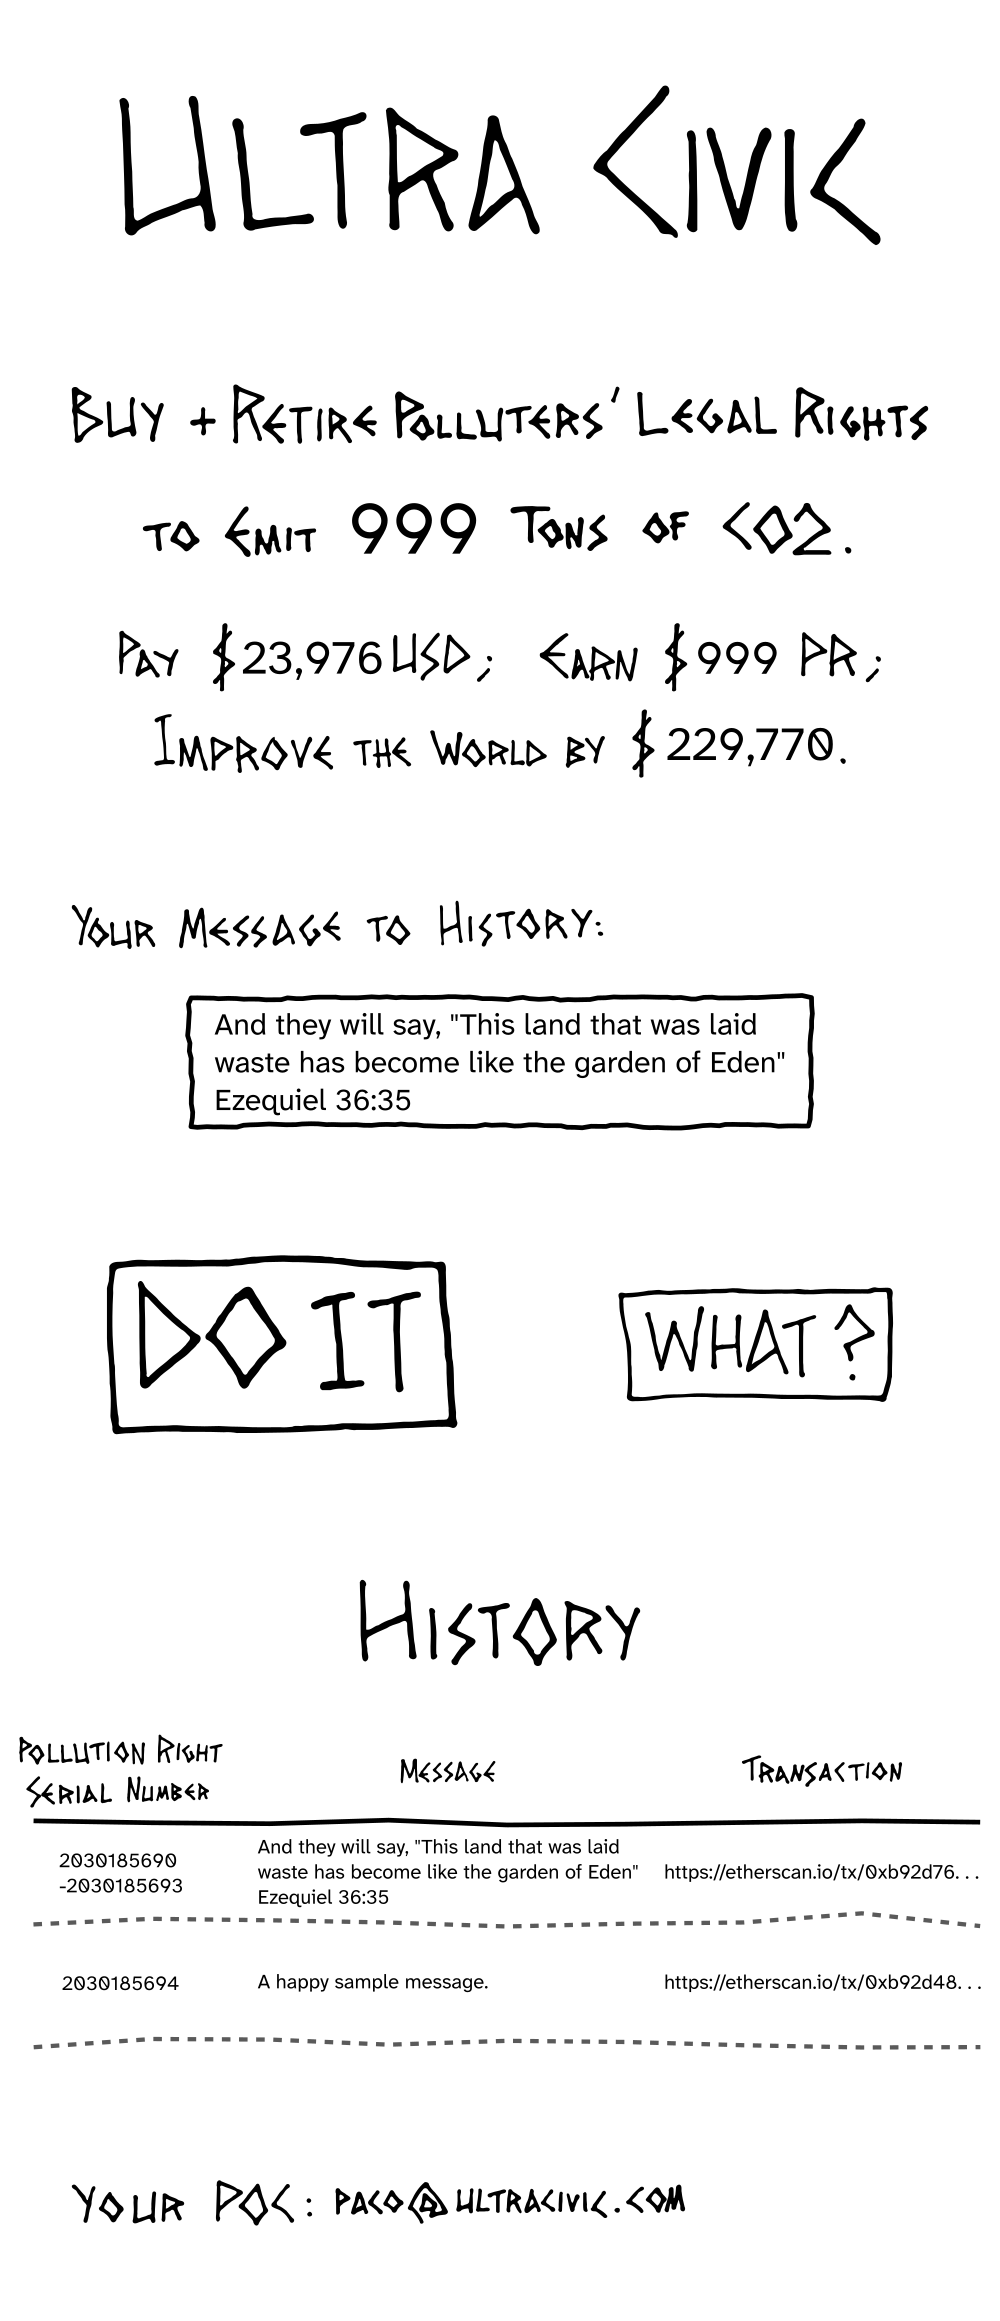 ULTRA CIVIC
BUY + RETIRE POLLUTERS' LEGAL RIGHTS
TO EMIT 999 TONS OF CO2.
PAY $23,976 USD; EARN $999 PR;
IMPROVE THE WORLD BY $229,770.
YOUR MESSAGE TO HISTORY:
And they will say, "This land that was laid
waste has become like the garden of Eden"
Ezequiel 36:35
DO IT
WHAT?
HISTORY
POLLUTION RIGHT
SERIAL NUMBER
MESSAGE
TRANSACTION
2030185690
-2030185693
And they will say, "This land that was laid
waste has become like the garden of Eden"
Ezequiel 36:35
https://etherscan.io/tx/0xb92d76...
2030185694
A happy sample message.
https://etherscan.io/tx/0xb92d48...
YOUR POC: PACO@ULTRACIVIC.COM